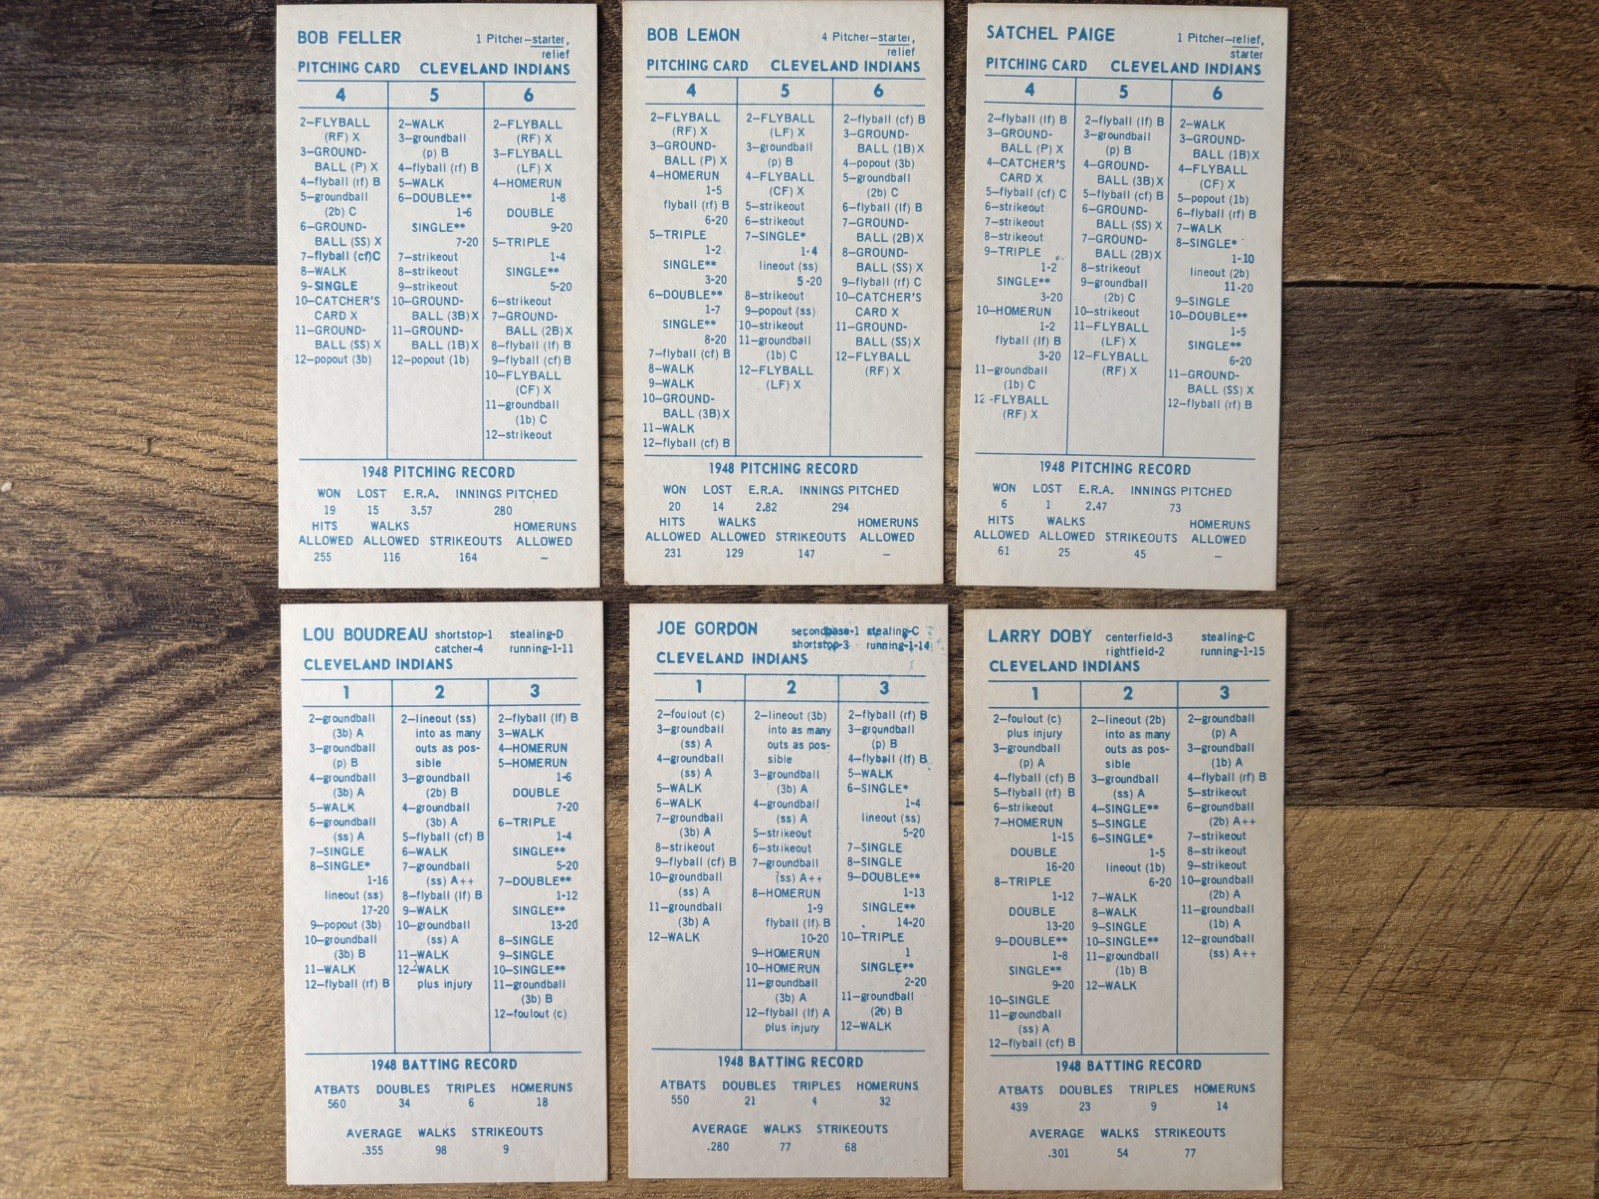 BOB FELLER 1 Pitcher–starter,
relief
PITCHING CARD CLEVELAND INDIANS
4
2–FLYBALL
(RF) X
3–GROUND-
BALL (P) X
4–flyball (rf) B
5–groundball
(2b) C
6–GROUND-
BALL (SS) X
7–flyball (cf)C
8–WALK
9–SINGLE
10–CATCHER'S
CARD X
11–GROUND-
BALL (SS) X
12–popout (3b)
5
2–WALK
3–groundball
(p) B
4–flyball (rf) B
5–WALK
6–DOUBLE**
1-6
SINGLE**
7-20
7–strikeout
8–strikeout
9–strikeout
10–GROUND-
BALL (3B) X
11–GROUND-
BALL (1B) X
12–popout (1b)
6
2–FLYBALL
(RF) X
3–FLYBALL
(LF) X
4–HOMERUN
1-8
DOUBLE
9-20
5–TRIPLE
1-4
SINGLE**
5-20
6–strikeout
7–GROUND-
BALL (2B) X
8–flyball (lf) B
9–flyball (cf) B
10–FLYBALL
(CF) X
11–groundball
(1b) C
12–strikeout
1948 PITCHING RECORD
WON LOST E.R.A. INNINGS PITCHED
19 15 3.57 280
HITS WALKS HOMERUNS
ALLOWED ALLOWED STRIKEOUTS ALLOWED
255 116 164 –
BOB LEMON 4 Pitcher–starter,
relief
PITCHING CARD CLEVELAND INDIANS
4
2–FLYBALL
(RF) X
3–GROUND-
BALL (P) X
4–HOMERUN
1-5
flyball (rf) B
6-20
5–TRIPLE
1-2
SINGLE**
3-20
6–DOUBLE**
1-7
SINGLE**
8-20
7–flyball (cf) B
8–WALK
9–WALK
10–GROUND-
BALL (3B) X
11–WALK
12–flyball (cf) B
5
2–FLYBALL
(LF) X
3–groundball
(p) B
4–FLYBALL
(CF) X
5–strikeout
6–strikeout
7–SINGLE*
1-4
lineout (ss)
5-20
8–strikeout
9–popout (ss)
10–strikeout
11–groundball
(1b) C
12–FLYBALL
(LF) X
6
2–flyball (cf) B
3–GROUND-
BALL (1B) X
4–popout (3b)
5–groundball
(2b) C
6–flyball (lf) B
7–GROUND-
BALL (2B) X
8–GROUND-
BALL (SS) X
9–flyball (rf) C
10–CATCHER'S
CARD X
11–GROUND-
BALL (SS) X
12–FLYBALL
(RF) X
1948 PITCHING RECORD
WON LOST E.R.A. INNINGS PITCHED
20 14 2.82 294
HITS WALKS HOMERUNS
ALLOWED ALLOWED STRIKEOUTS ALLOWED
231 129 147 –
SATCHEL PAIGE 1 Pitcher–relief,
starter
PITCHING CARD CLEVELAND INDIANS
4
2–flyball (lf) B
3–GROUND-
BALL (P) X
4–CATCHER'S
CARD X
5–flyball (cf) C
6–strikeout
7–strikeout
8–strikeout
9–TRIPLE
1-2
SINGLE**
3-20
10–HOMERUN
1-2
flyball (lf) B
3-20
11–groundball
(1b) C
12–FLYBALL
(RF) X
5
2–flyball (lf) B
3–groundball
(p) B
4–GROUND-
BALL (3B) X
5–flyball (cf) B
6–GROUND-
BALL (SS) X
7–GROUND-
BALL (2B) X
8–strikeout
9–groundball
(2b) C
10–strikeout
11–FLYBALL
(LF) X
12–FLYBALL
(RF) X
6
2–WALK
3–GROUND-
BALL (1B) X
4–FLYBALL
(CF) X
5–popout (1b)
6–flyball (rf) B
7–WALK
8–SINGLE*
1-10
lineout (2b)
11-20
9–SINGLE
10–DOUBLE**
1-5
SINGLE**
6-20
11–GROUND-
BALL (SS) X
12–flyball (rf) B
1948 PITCHING RECORD
WON LOST E.R.A. INNINGS PITCHED
6 1 2.47 73
HITS WALKS HOMERUNS
ALLOWED ALLOWED STRIKEOUTS ALLOWED
61 25 45 –
LOU BOUDREAU shortstop-1 stealing-D
catcher-4 running-1-11
CLEVELAND INDIANS
1
2–groundball
(3b) A
3–groundball
(p) B
4–groundball
(3b) A
5–WALK
6–groundball
(ss) A
7–SINGLE
8–SINGLE*
1-16
lineout (ss)
17-20
9–popout (3b)
10–groundball
(3b) B
11–WALK
12–flyball (rf) B
2
2–lineout (ss)
into as many
outs as pos-
sible
3–groundball
(2b) B
4–groundball
(3b) A
5–flyball (cf) B
6–WALK
7–groundball
(ss) A++
8–flyball (lf) B
9–WALK
10–groundball
(ss) A
11–WALK
12–WALK
plus injury
3
2–flyball (lf) B
3–WALK
4–HOMERUN
5–HOMERUN
1-6
DOUBLE
7-20
6–TRIPLE
1-4
SINGLE**
5-20
7–DOUBLE**
1-12
SINGLE**
13-20
8–SINGLE
9–SINGLE
10–SINGLE**
11–groundball
(3b) B
12–foulout (c)
1948 BATTING RECORD
ATBATS DOUBLES TRIPLES HOMERUNS
560 34 6 18
AVERAGE WALKS STRIKEOUTS
.355 98 9
JOE GORDON secondbase-1 stealing-C
shortstop-3 running-1-14
CLEVELAND INDIANS
1
2–foulout (c)
3–groundball
(ss) A
4–groundball
(ss) A
5–WALK
6–WALK
7–groundball
(3b) A
8–strikeout
9–flyball (cf) B
10–groundball
(ss) A
11–groundball
(3b) A
12–WALK
2
2–lineout (3b)
into as many
outs as pos-
sible
3–groundball
(3b) A
4–groundball
(ss) A
5–strikeout
6–strikeout
7–groundball
(ss) A++
8–HOMERUN
1-9
flyball (lf) B
10-20
9–HOMERUN
10–HOMERUN
11–groundball
(3b) A
12–flyball (lf) A
plus injury
3
2–flyball (rf) B
3–groundball
(p) B
4–flyball (lf) B
5–WALK
6–SINGLE*
1-4
lineout (ss)
5-20
7–SINGLE
8–SINGLE
9–DOUBLE**
1-13
SINGLE**
14-20
10–TRIPLE
1
SINGLE**
2-20
11–groundball
(2b) B
12–WALK
1948 BATTING RECORD
ATBATS DOUBLES TRIPLES HOMERUNS
550 21 4 32
AVERAGE WALKS STRIKEOUTS
.280 77 68
LARRY DOBY centerfield-3 stealing-C
rightfield-2 running-1-15
CLEVELAND INDIANS
1
2–foulout (c)
plus injury
3–groundball
(p) A
4–flyball (cf) B
5–flyball (rf) B
6–strikeout
7–HOMERUN
1-15
DOUBLE
16-20
8–TRIPLE
1-12
DOUBLE
13-20
9–DOUBLE**
1-8
SINGLE**
9-20
10–SINGLE
11–groundball
(ss) A
12–flyball (cf) B
2
2–lineout (2b)
into as many
outs as pos-
sible
3–groundball
(ss) A
4–SINGLE**
5–SINGLE
6–SINGLE*
1-5
lineout (1b)
6-20
7–WALK
8–WALK
9–SINGLE
10–SINGLE**
11–groundball
(1b) B
12–WALK
3
2–groundball
(p) A
3–groundball
(1b) A
4–flyball (rf) B
5–strikeout
6–groundball
(2b) A++
7–strikeout
8–strikeout
9–strikeout
10–groundball
(2b) A
11–groundball
(1b) A
12–groundball
(ss) A++
1948 BATTING RECORD
ATBATS DOUBLES TRIPLES HOMERUNS
439 23 9 14
AVERAGE WALKS STRIKEOUTS
.301 54 77